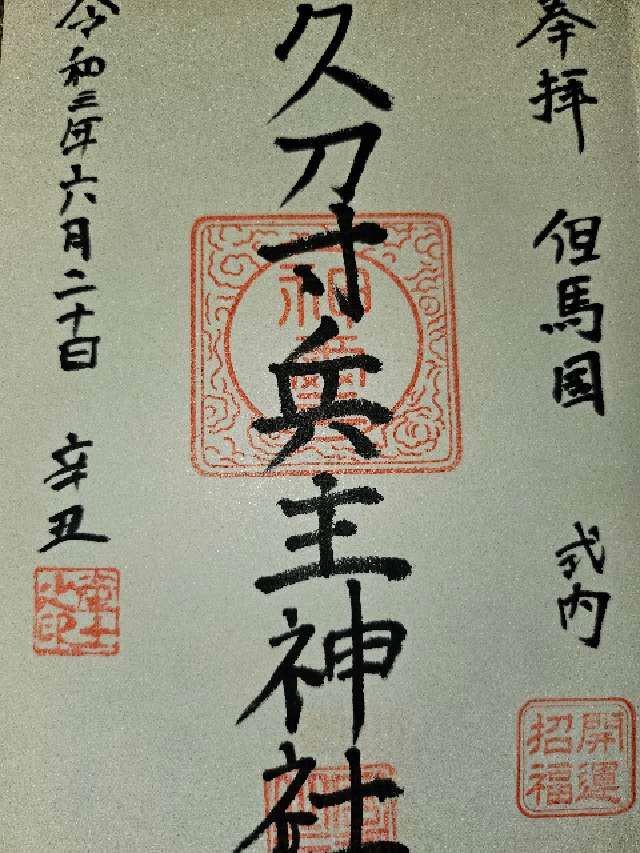 奉拝 但馬国 式内
開運
招福
久刀寸兵主神社
神璽
令和三年六月二十日 辛丑